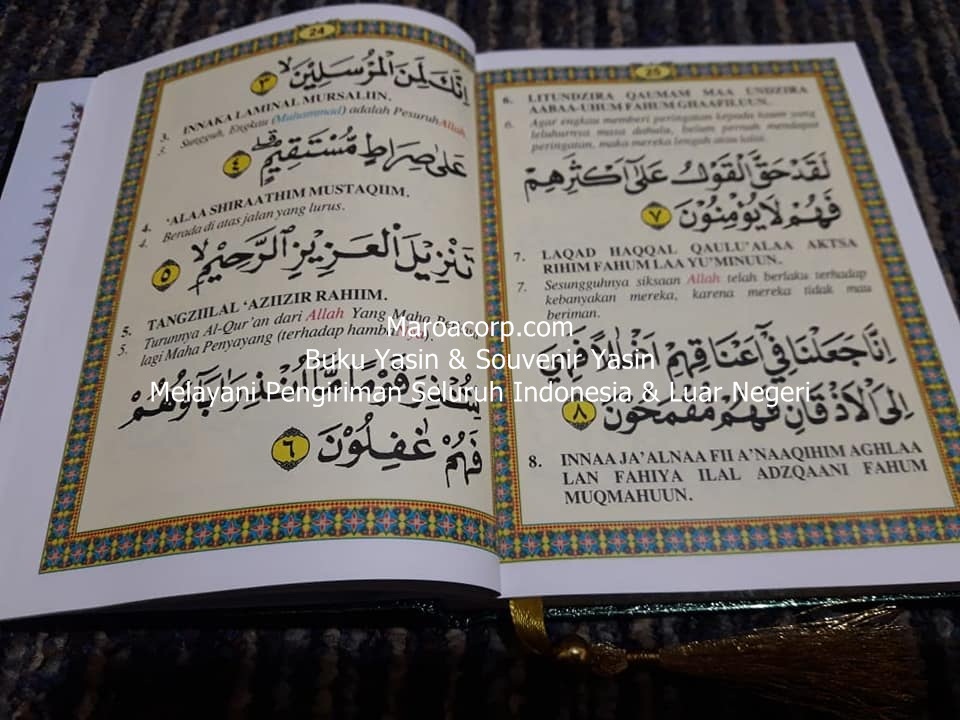 24
اِنَّكَ لَمِنَ الْمُرْسَلِيْنَۙ ٣
3. INNAKA LAMINAL MURSALIIN.
3. Sungguh, Engkau (Muhammad) adalah Pesuruh Allah
عَلٰى صِرَاطٍ مُّسْتَقِيْمٍۗ ٤
4. ‘ALAA SHIRAATHIM MUSTAQIIM.
4. Berada di atas jalan yang lurus.
تَنْزِيْلَ الْعَزِيْزِ الرَّحِيْمِۙ ٥
5. TANGZIILAL ‘AZIIZIR RAHIIM.
5. Turunnya Al-Qur’an dari Allah Yang Maha
lagi Maha Penyayang (terhadap
اٰبَاۤؤُهُمْ
فَهُمْ غٰفِلُوْنَ ٦
25
6. LITUNDZIRA QAUMAM MAA UNDZIRA
AABAA-UHUM FAHUM GHAAFILUUN.
6. Agar engkau memberi peringatan kepada kaum yang
leluhurnya masa dahulu, belum pernah mendapat
peringatan, maka mereka lengah atau lalai.
لَقَدْ حَقَّ الْقَوْلُ عَلٰٓى اَكْثَرِهِمْ
فَهُمْ لَا يُؤْمِنُوْنَ ٧
7. LAQAD HAQQAL QAULU’ALAA AKTSA
RIHIM FAHUM LAA YU’MINUUN.
7. Sesungguhnya siksaan Allah telah berlaku terhadap
kebanyakan mereka, karena mereka tidak mau
beriman.
اِنَّا جَعَلْنَا فِيْٓ اَعْنَاقِهِمْ اَغْلٰلًا فَهِيَ
اِلَى الْاَذْقَانِ فَهُمْ مُّقْمَحُوْنَ ٨
8. INNAA JA’ALNAA FII A’NAAQIHIM AGHLAA
LAN FAHIYA ILAL ADZQAANI FAHUM
MUQMAHUUN.
Maroacorp.com
Buku Yasin & Souvenir Yasin
Melayani Pengiriman Seluruh Indonesia & Luar Negeri